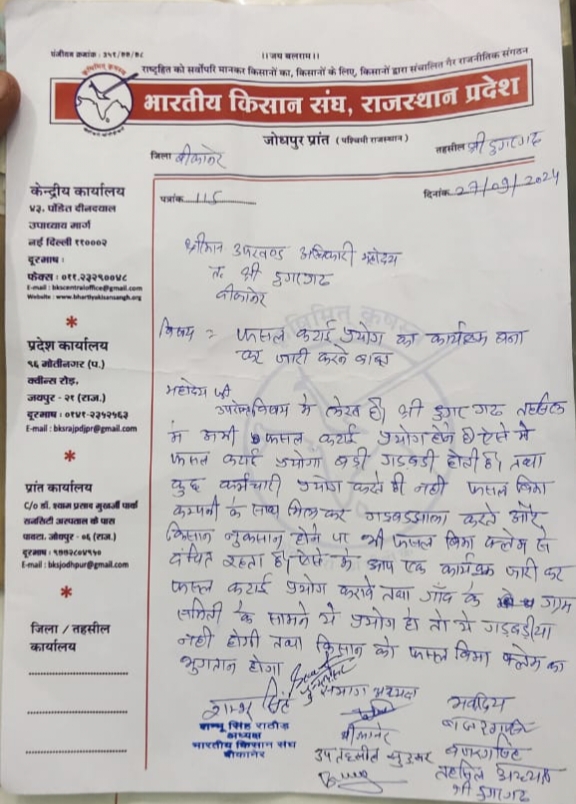 पंजीयन क्रमांक : ३५१/७७/७८
।।जय बलराम।।
राष्ट्रहित को सर्वोपरि मानकर किसानों का, किसानों के लिए, किसानों द्वारा संचालित गैर राजनीतिक संगठन
भारतीय किसान संघ, राजस्थान प्रदेश
जोधपुर प्रांत (पश्चिमी राजस्थान)
जिला बीकानेर
तहसील श्री डुंगरगढ
पत्रांक 115
दिनांक 27/09/2024
केन्द्रीय कार्यालय
४३, पंडित दीनदयाल
उपाध्याय मार्ग
नई दिल्ली ११०००२
दूरभाष :
फेक्स : ०११.२३२१००४८
E-mail : bkscentraloffice@gmail.com
Website : www.bhartiyakisansangh.org
प्रदेश कार्यालय
१६ मोतीनगर (प.)
क्वीन्स रोड़,
जयपुर - २१ (राज.)
दूरभाष : ०१४१-२३५२५६३
E-mail : bksrajpdjpr@gmail.com
प्रांत कार्यालय
C/o डॉ. श्याम प्रसाद मुखर्जी पार्क
राजसिटी अस्पताल के पास
पावटा, जोधपुर - ०६ (राज.)
E-mail : bksjodhpur@gmail.com
जिला / तहसील
कार्यालय
श्रीमान उपखण्ड अधिकारी महोदय
त. श्री डुंगरगढ
बीकानेर
विषय = फसल कटाई प्रयोग का कार्यक्रम बना
कर जारी करने बाबत
महोदय जी
उपरोक्त विषय में लेख है। श्री डुंगरगढ तहसील
में अभी फसल कटाई प्रयोग होने है। ऐसे में
फसल कटाई प्रयोग बड़ी गडबडी होती है। तथा
कुछ कर्मचारी प्रयोग करते ही नही फसल बिमा
कम्पनी के साथ मिलकर गडबडझाला करते और
किसान नुकसान होने पर भी फसल बिमा क्लेम से
वंचित रहता है। ऐसे में आप एक कार्यक्रम जारी कर
फसल कटाई प्रयोग करावे तथा गाँव के ग्राम
समिती के सामने ये प्रयोग हो तो ये गडबडीया
नही होगी तथा किसान को फसल बिमा क्लेम का
भुगतान होगा
शम्भू सिंह
संभाग अध्यक्ष
बीकानेर
शम्भू सिंह राठौड़
अध्यक्ष
भारतीय किसान संघ
बीकानेर
भवदिय
तहसिल अध्यक्ष
श्री डुंगरगढ